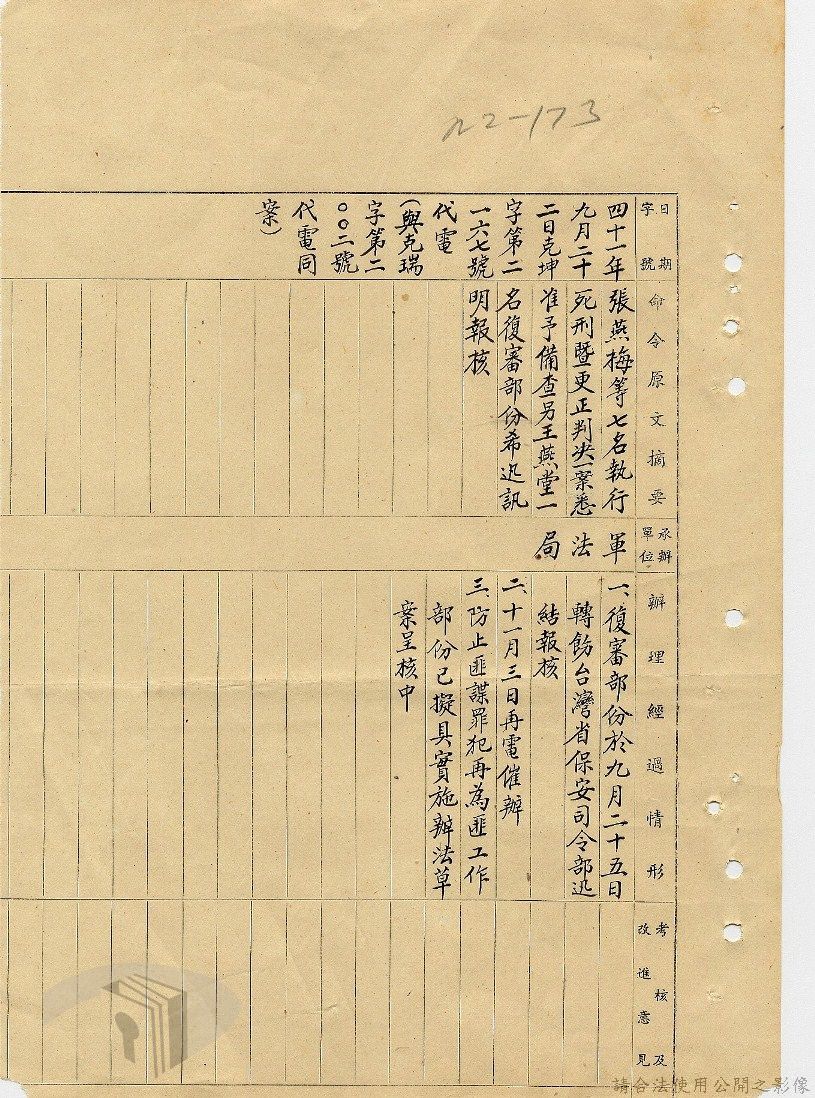 22-173
日期
字號
命令原文摘要
承辦
單位
辦理經過情形
考核及
改進意見
四十一年
九月二十
二日克坤
字第二
一六七號
代電
(與克瑞
字第二
〇〇二號
代電同
案)
張燕梅等七名執行
死刑暨更正判決一案悉
准予備查另王燕堂一
名復審部份希迅訊
明報核
軍法局
一、復審部份於九月二十五日
轉飭台灣省保安司令部迅
結報核
二、十一月三日再電催辦
三、防止匪諜罪犯再為匪工作
部份已擬具實施辦法草
案呈核中
請合法使用公開之影像